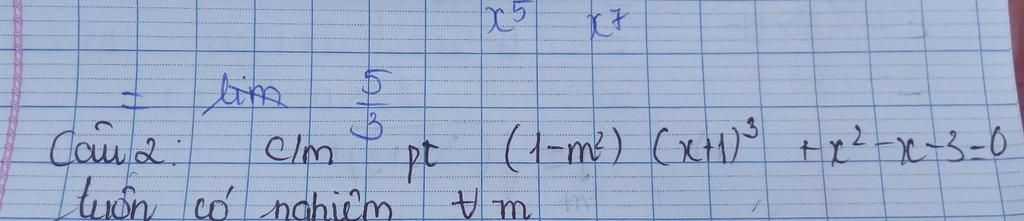 x⁵ x⁷
= lim 5/3
Câu 2: c/m pt (1-m²) (x+1)³ + x² - x - 3 = 0
luôn có nghiệm ∀ m